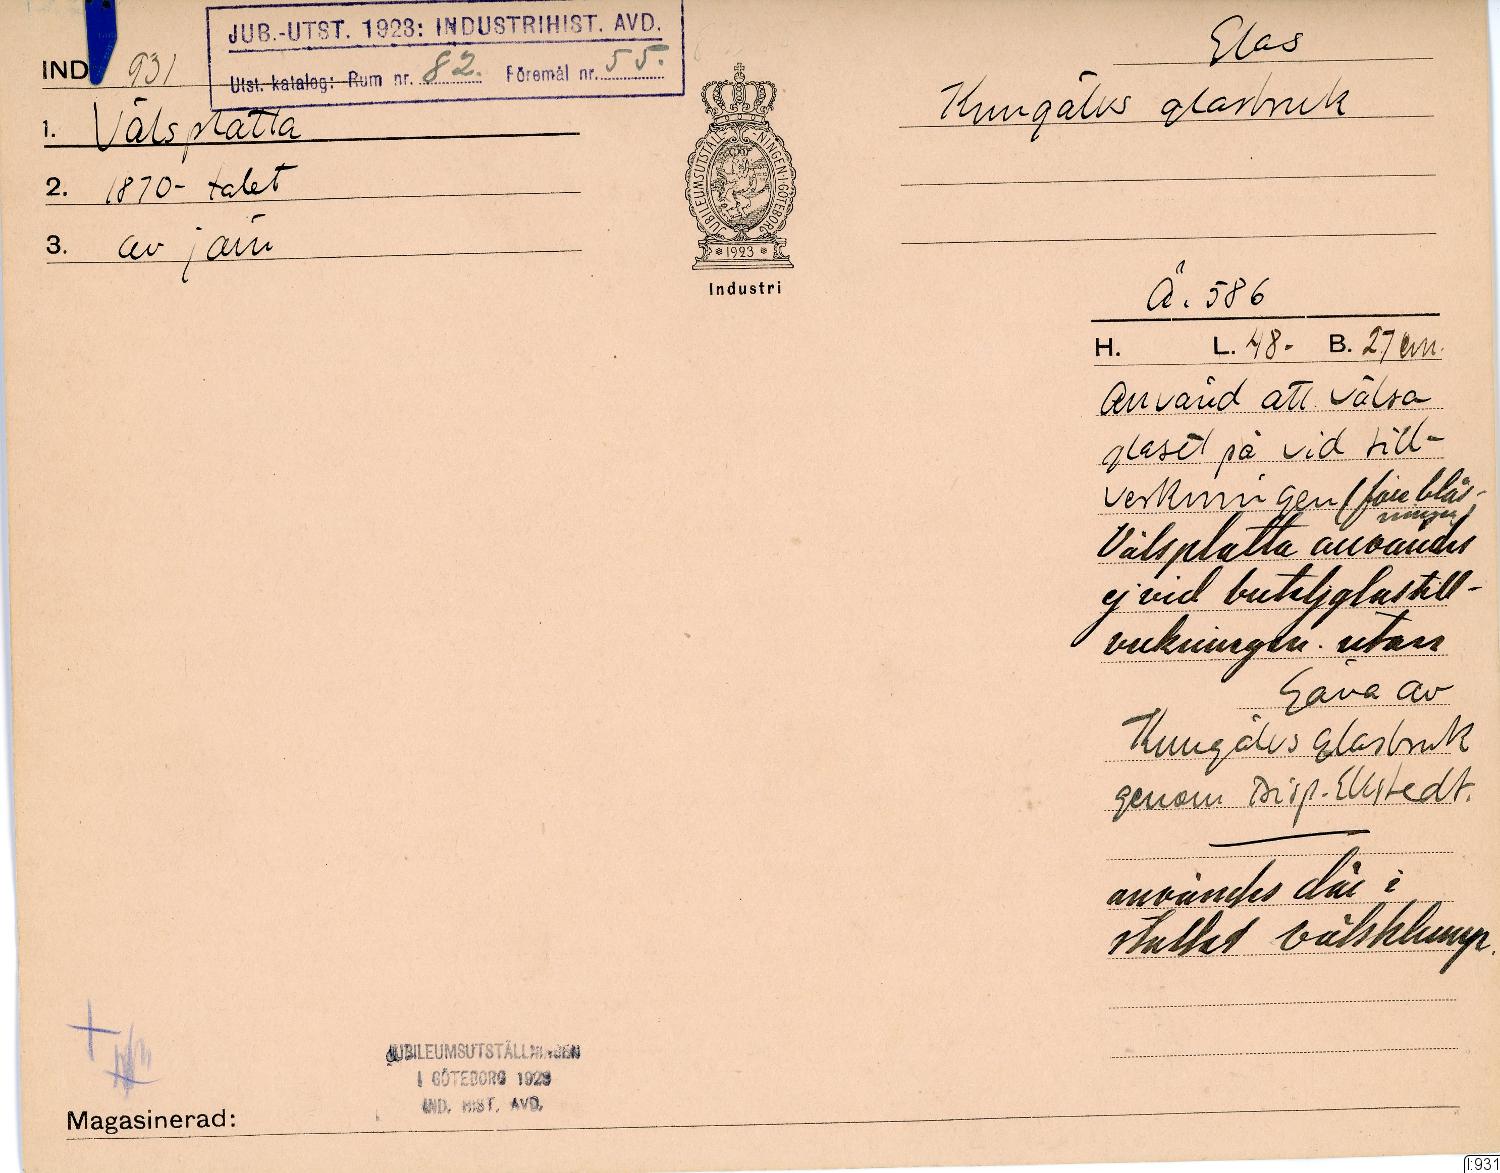 JUB.-UTST. 1923: INDUSTRIHIST. AVD.
Utst. katalog: Rum nr. 82. Föremål nr. 55.
IND 931
1. Välsplatta
2. 1870-talet
3. av järn
JUBILEUMSUTSTÄLLNINGEN·I·GÖTEBORG
1923
Industri
Glas
Kungälvs glasbruk
Å. 586
H. L. 48- B. 27 cm.
Använd att välsa
glaset på vid till-
verkningen (före blås-
ningen)
Välsplatta användes
ej vid buteljglastill-
verkningen. utan
Gåva av
Kungälvs glasbruk
genom Disp. Ekstedt.
användes där i
stället välsklump.
JUBILEUMSUTSTÄLLNINGEN
I GÖTEBORG 1923
IND. HIST. AVD.
Magasinerad:
I:931